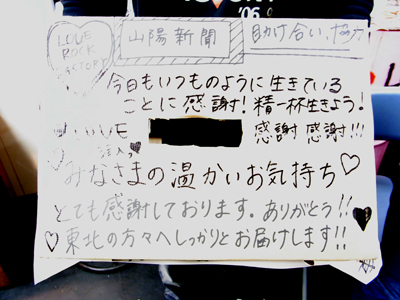 LOVE ROCK FACTORY
山陽新聞
助け合い、協力
今日もいつものように生きている
ことに感謝!精一杯生きよう!
感謝 感謝!!!
みなさまの温かいお気持ち♡
とても感謝しております。ありがとう!!
東北の方々へしっかりとお届けします!!